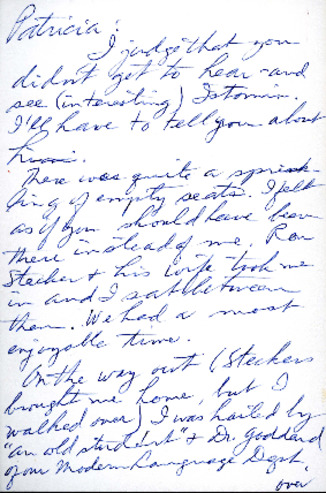 Patricia:
I judge that you
didn't get to hear and
see (interesting) Istomin.
I'll have to tell you about
him.
There was quite a sprink-
ling of empty seats. I felt
as if you should have been
there instead of me. Rev
Stecker & his wife took me
in and I sat between
them. We had a most
enjoyable time.
On the way out (Steckers
brought me home, but I
walked over) I was hailed by
"an old student" & Dr. Goddard
of our Modern Language Dept.
over